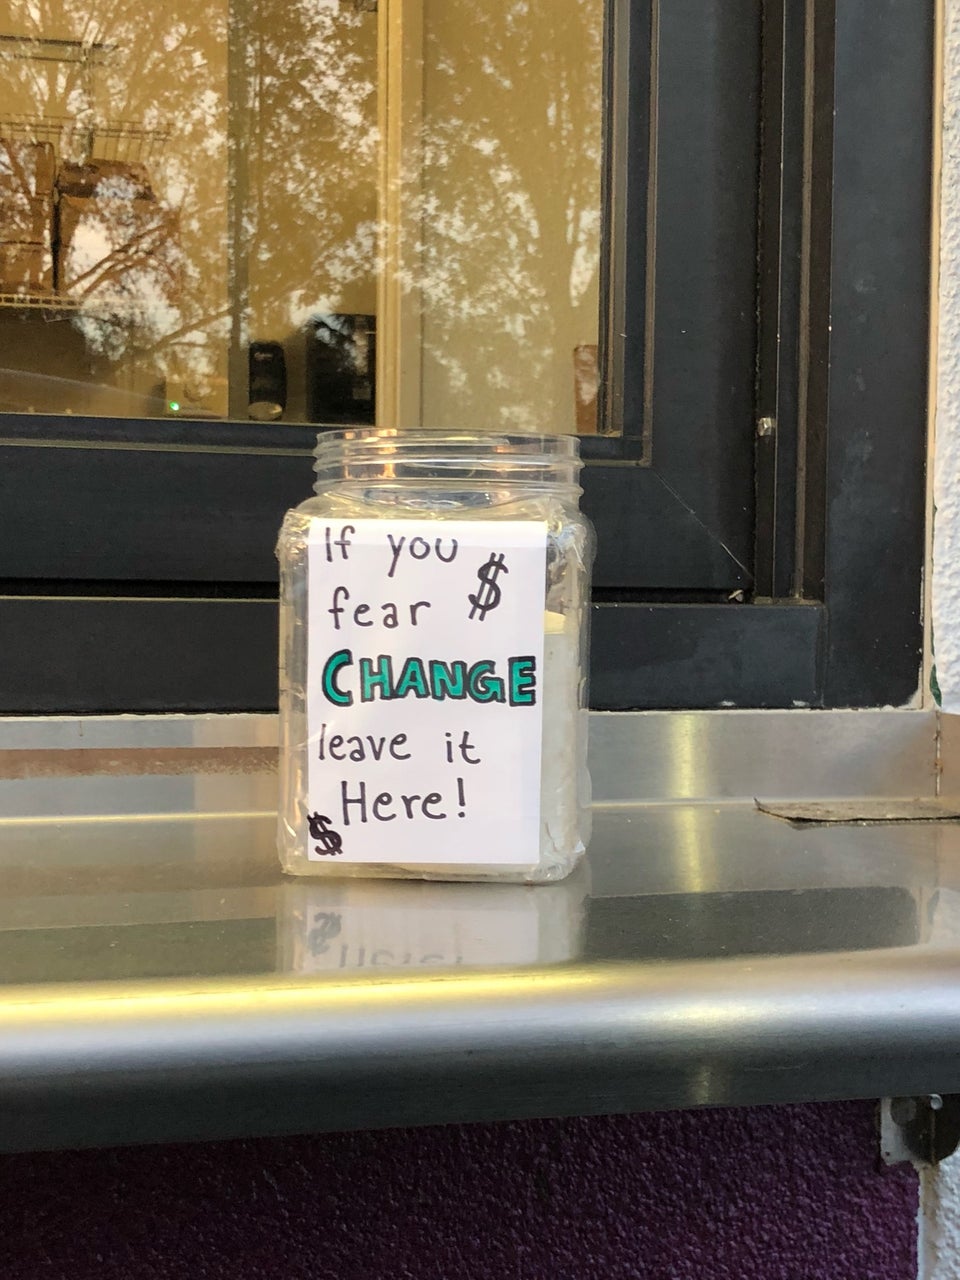 If you
fear $
CHANGE
leave it
Here!
$